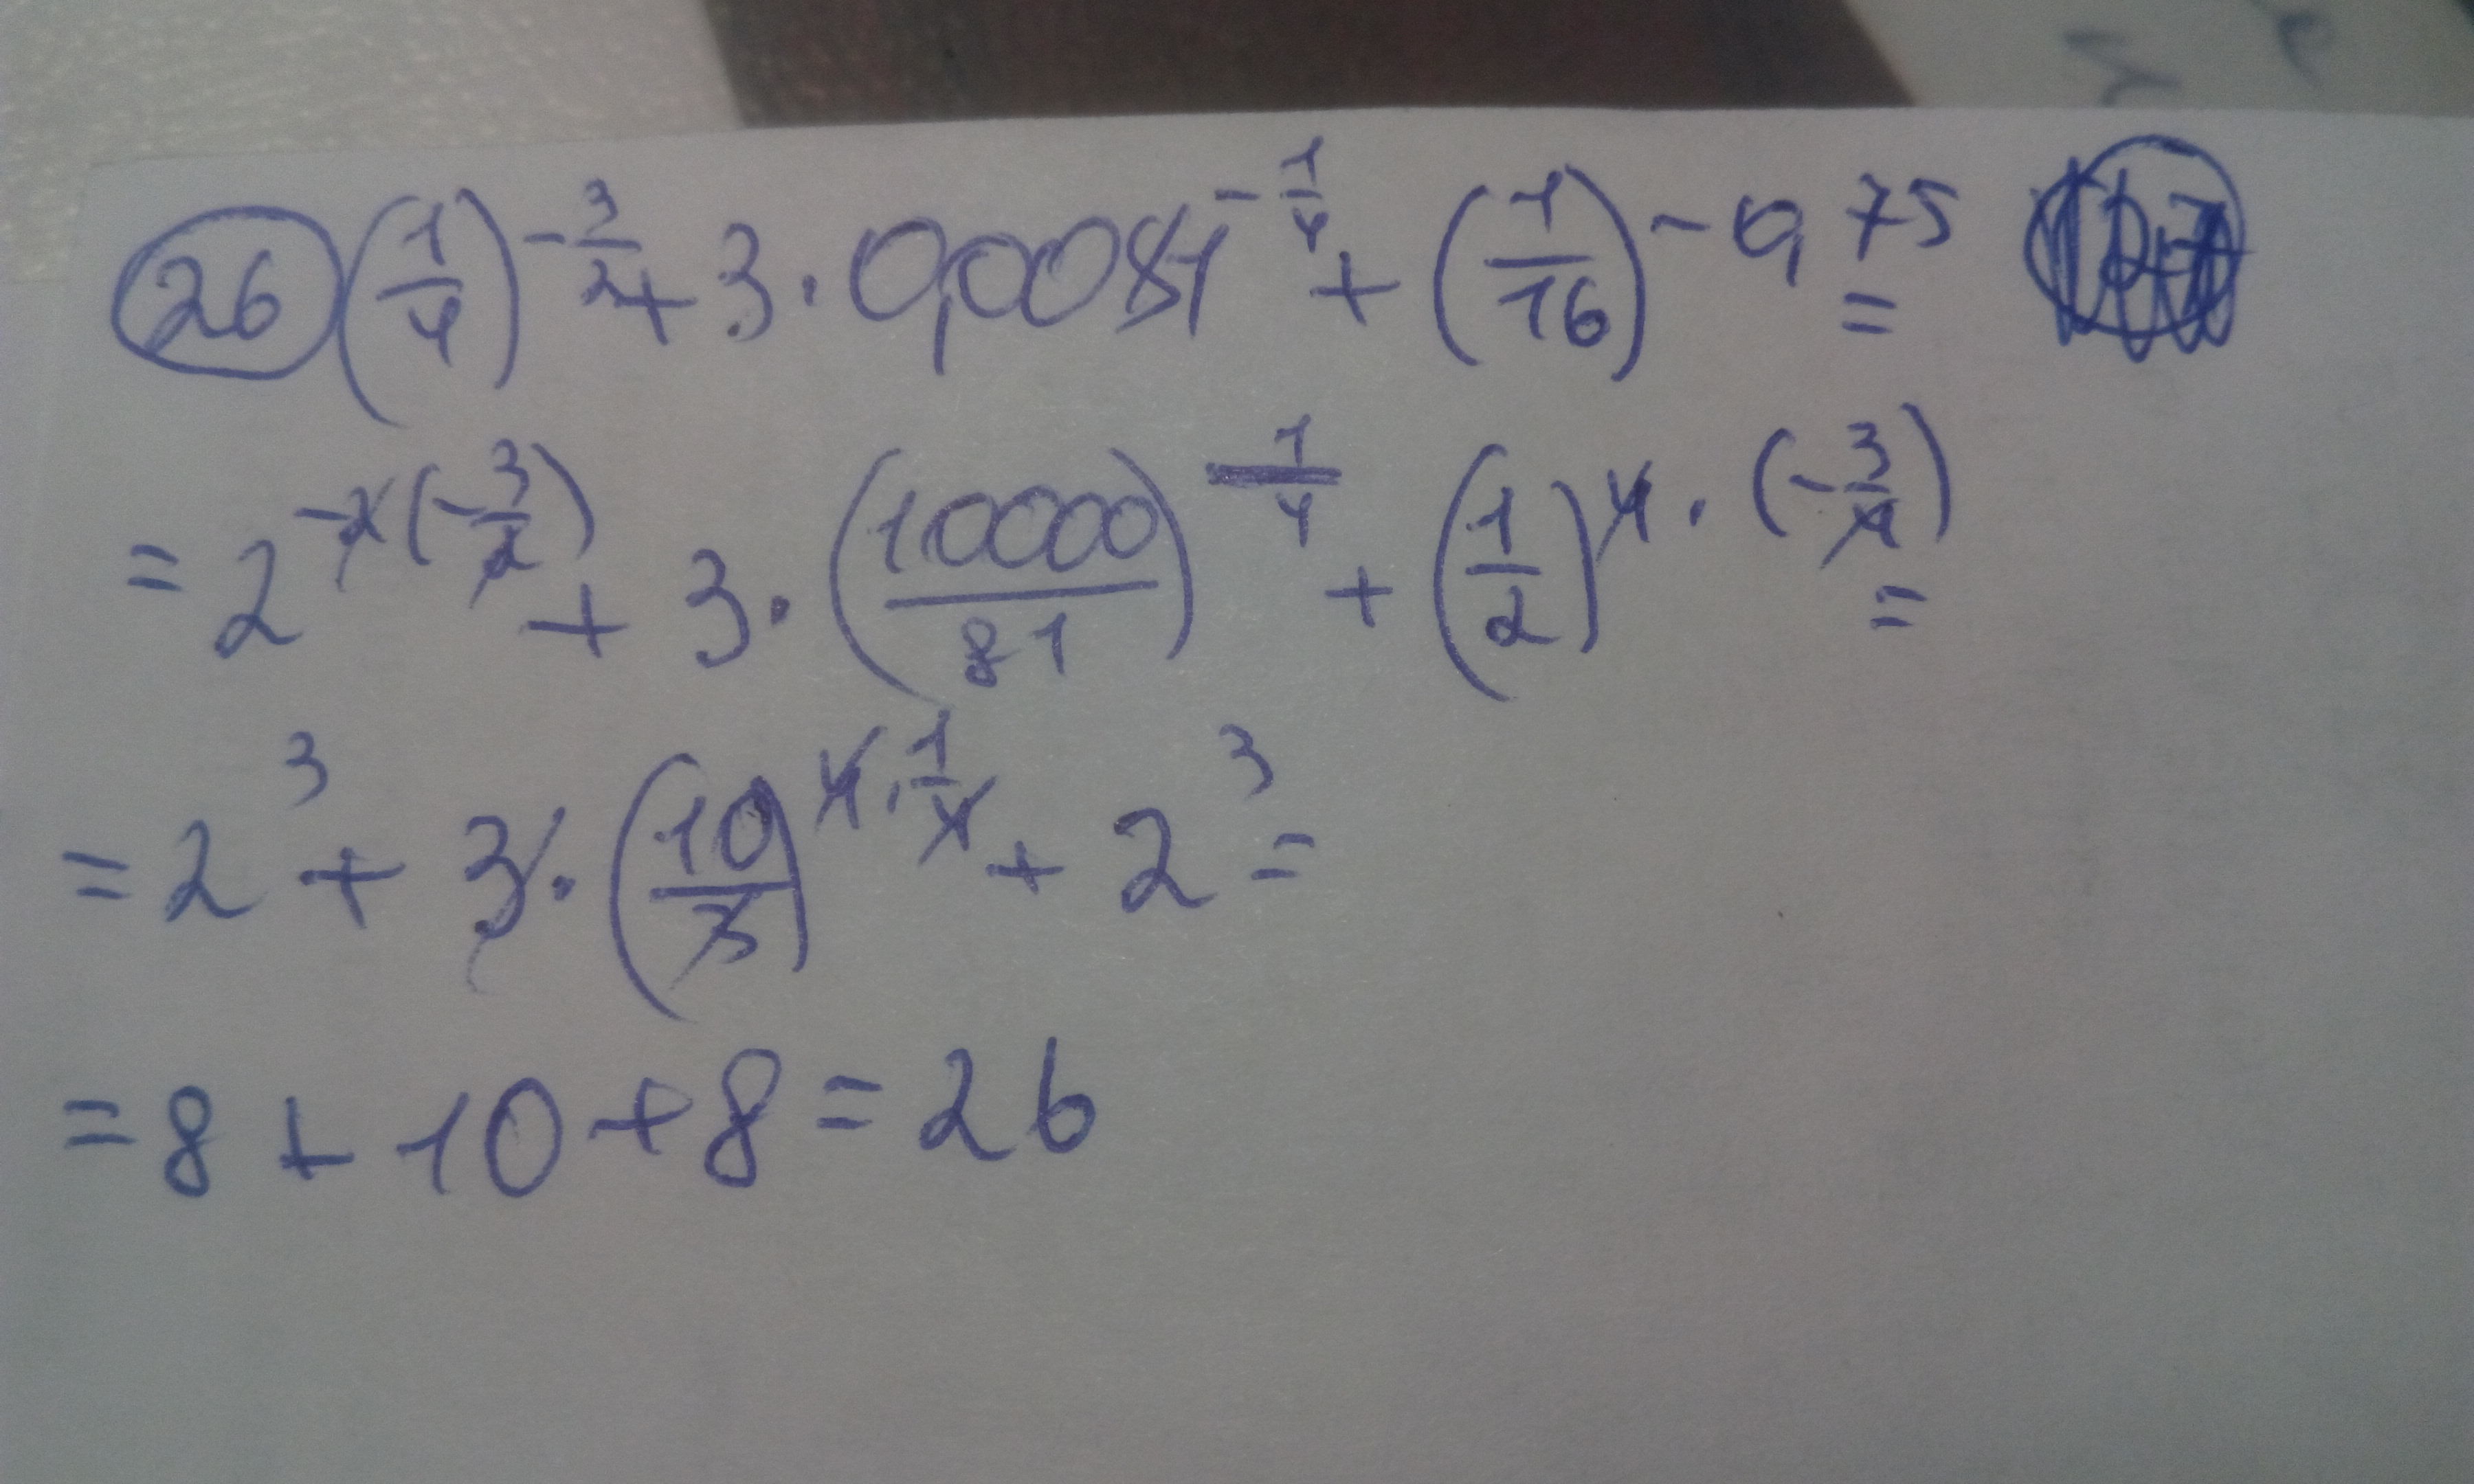 26 (1/4)^(-3/2) + 3 · 0,0081^(-1/4) + (1/16)^(-0,75) =
= 2^(-2(-3/2)) + 3 · (10000/81)^(1/4) + (1/2)^(4 · (-3/4)) =
= 2^3 + 3 · (10/3)^(4 · 1/4) + 2^3 =
= 8 + 10 + 8 = 26